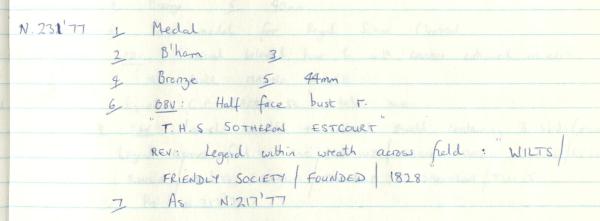 N.231'77 1 Medal
2 B'ham 3
4 Bronze 5 44mm
6 OBV: Half face bust r.
"T.H.S SOTHERON ESTCOURT"
REV: Legend within wreath across field: "WILTS/
FRIENDLY SOCIETY / FOUNDED / 1828
7 As N.217'77